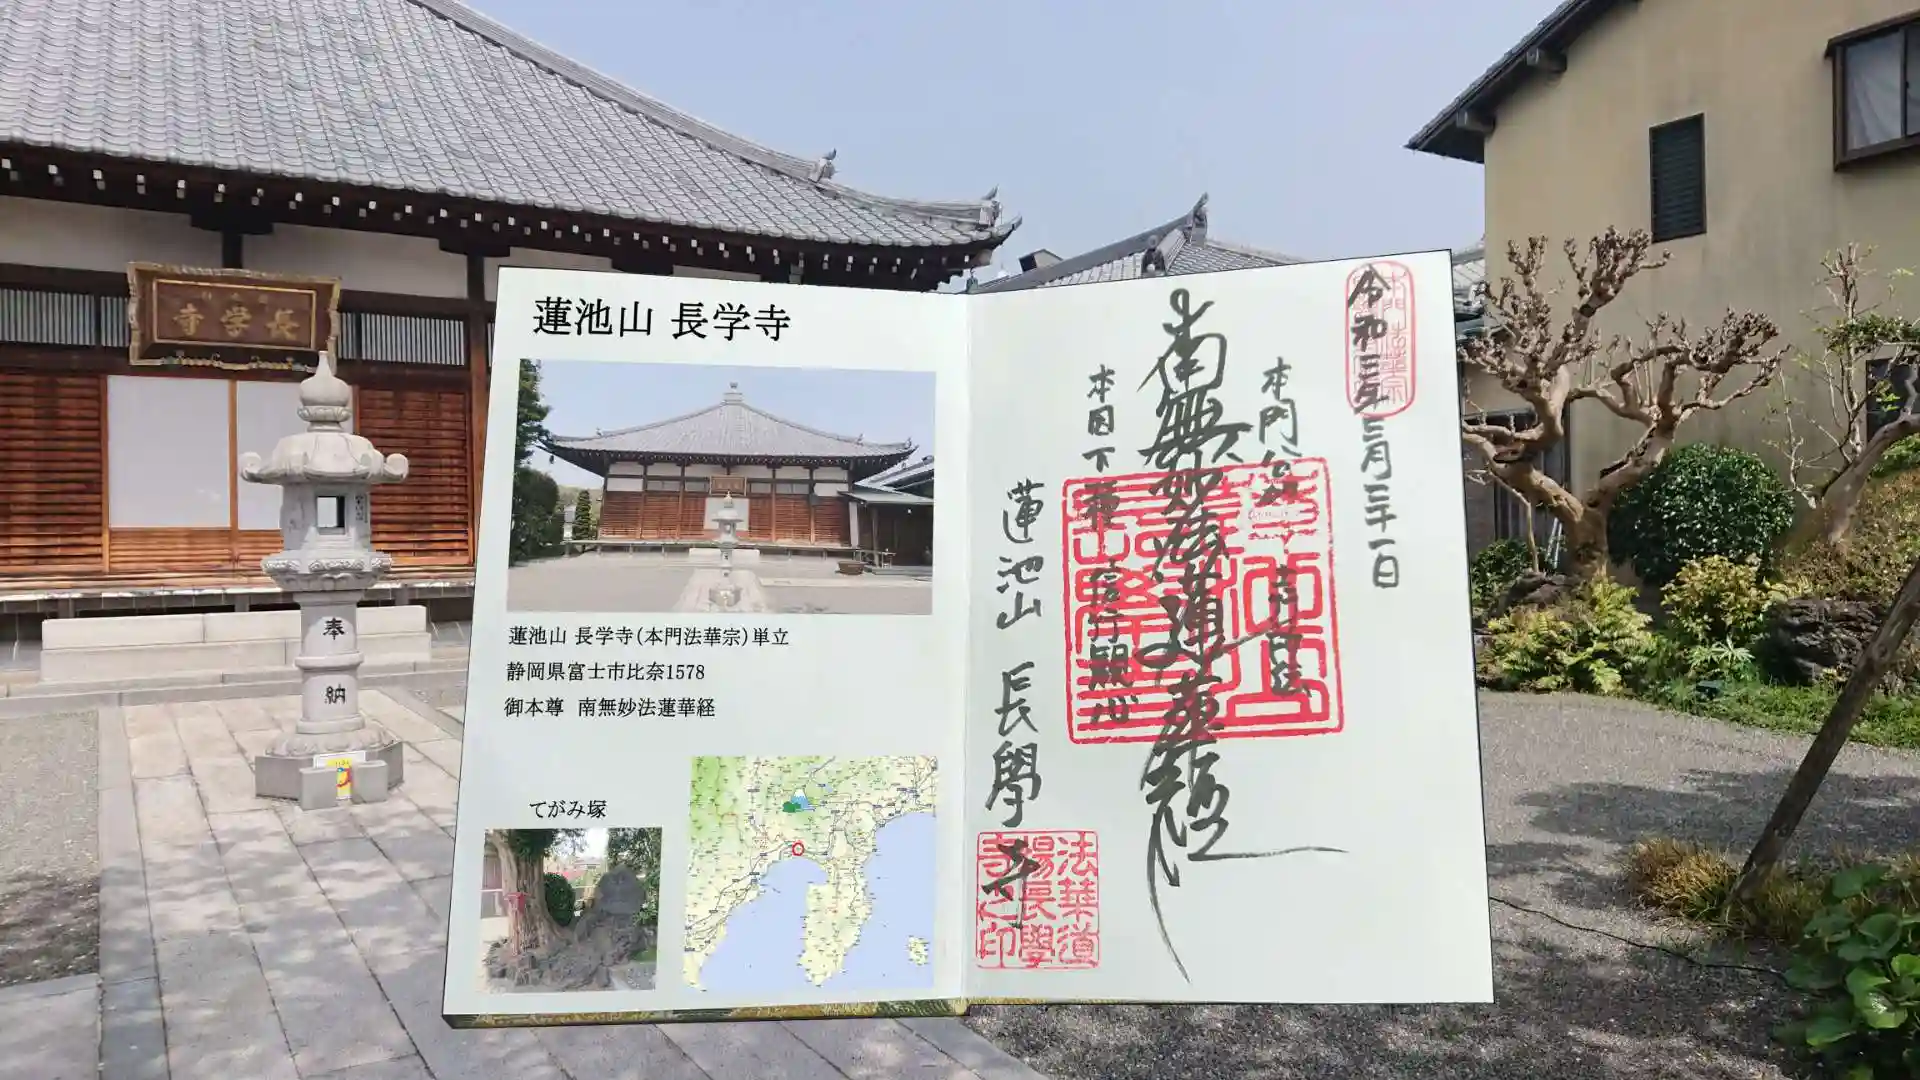 長学寺
奉
納
蓮池山 長学寺
蓮池山 長学寺(本門法華宗)単立
静岡県富士市比奈1578
御本尊 南無妙法蓮華経
てがみ塚
令和三年三月三十一日
本門法華宗
南無妙法蓮華経
本因下種 信行観心
蓮池山 長學寺
法華道
場長學
寺之印